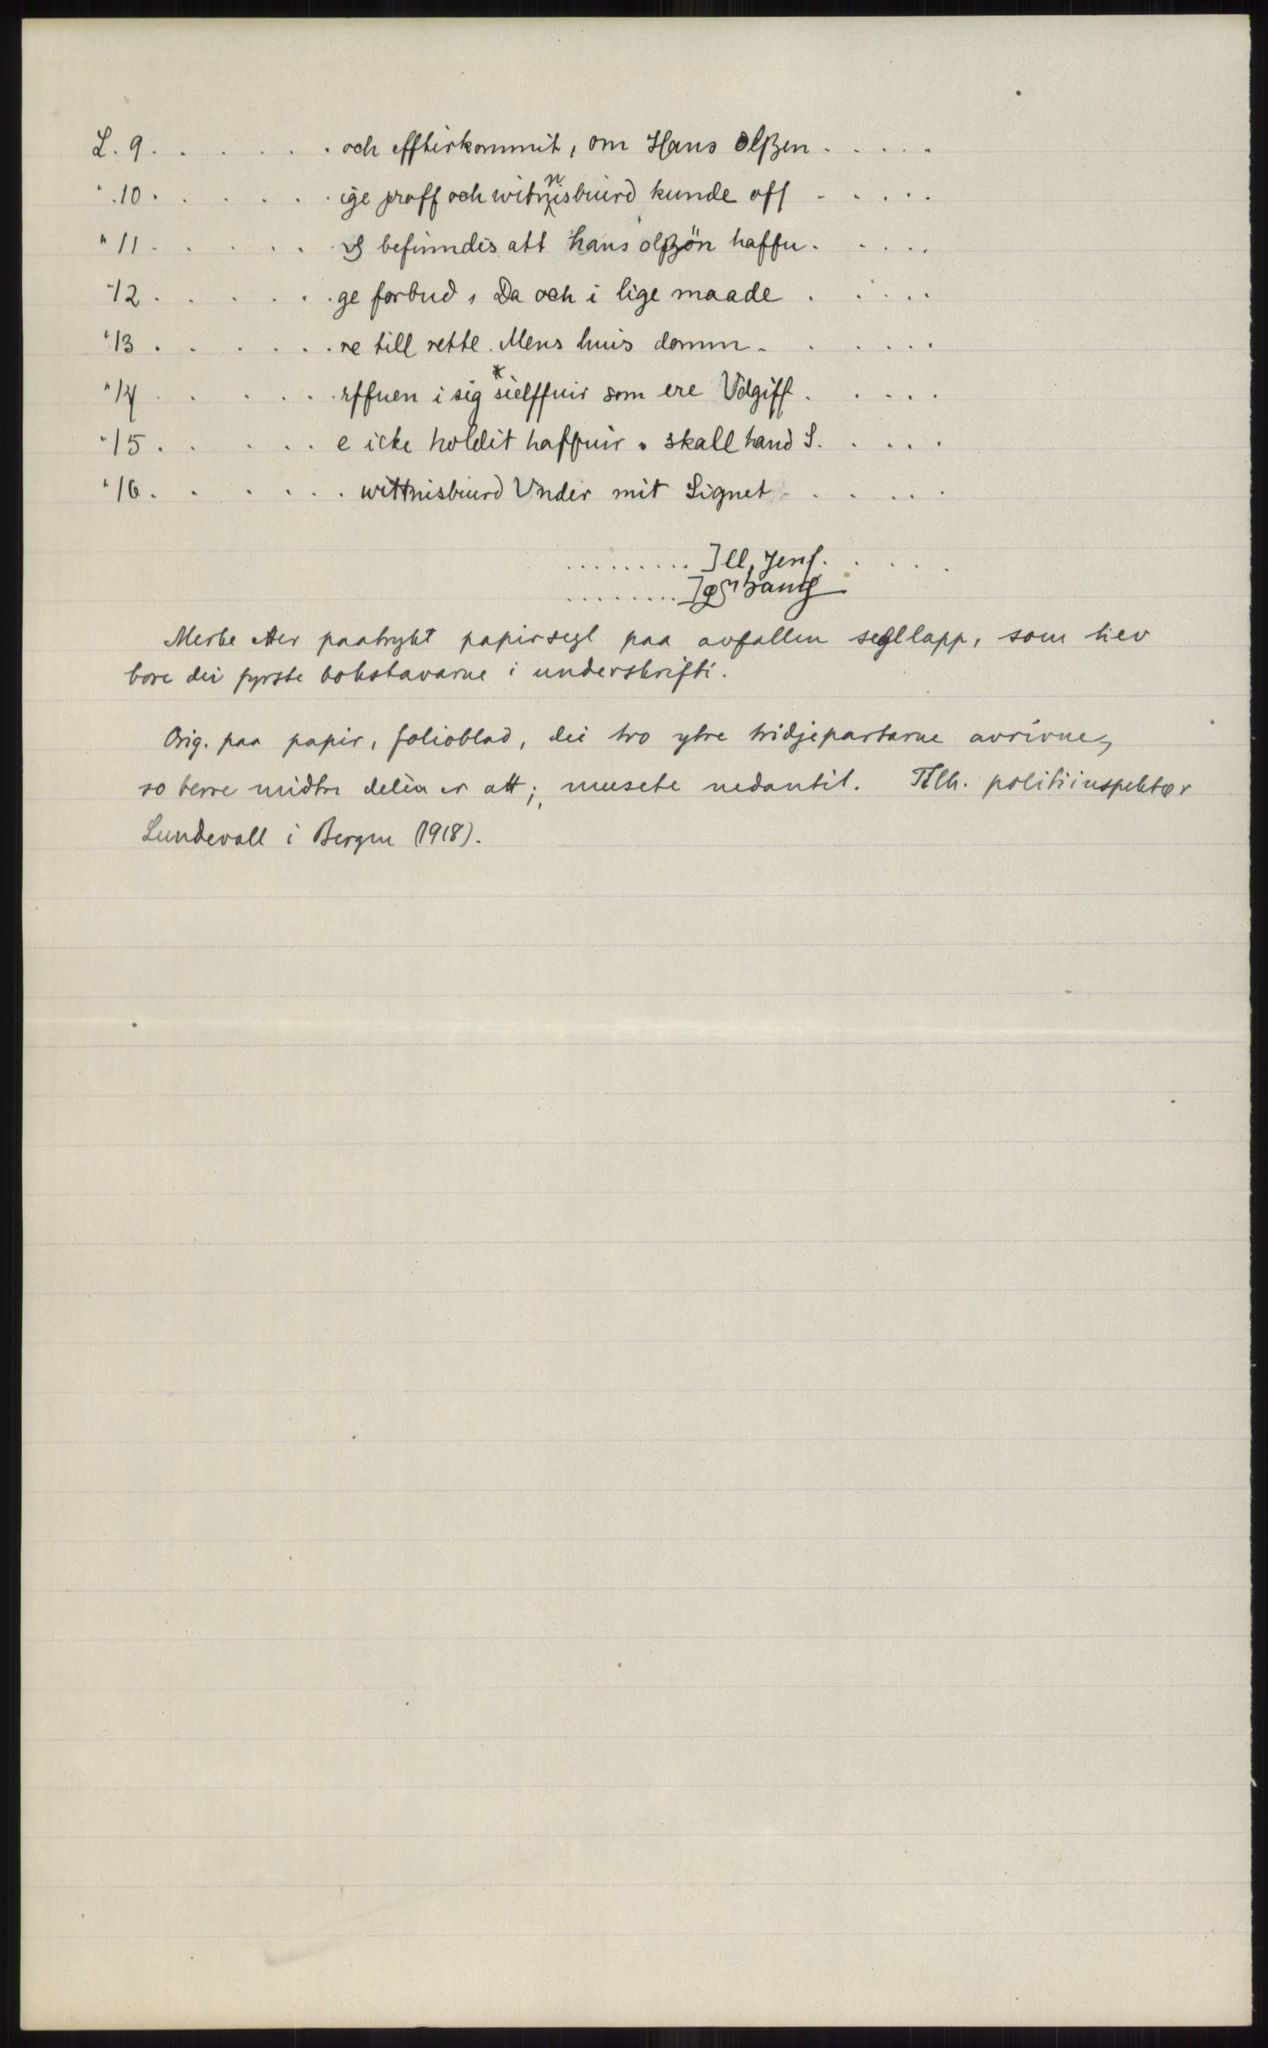 L. 9. . . . . . . och efftirkommit, om Hans Olßen . . . . .
" 10 . . . . . . . ige proff och witnisbiurd kunde off . . . . .
" 11 . . . . . . befinndis att hans olßön haffu . . . . .
" 12 . . . . . . . ge forbud, Da och i lige maade . . . . .
" 13 . . . . . . . re till rette. Mens huis domm . . . . . .
" 14 . . . . . . . rffuen i sig *sielffuir som ere Vdgiff . . . . .
" 15 . . . . . . e icke holdit haffuir . skall hand S . . . . .
" 16 . . . . . . . wittnisbiurd Vnder mit Signet . . . . . .
. . . . . . . . . Jll, Jens . . . . .
. . . . . . . . hans
Merke etter paatrykt papirsegl paa avfallen segllapp, som hev
bore dei fyrste bokstavarne i underskrifti.
Orig. paa papir, folioblad, dei tvo ytre tridjepartarne avrivne,
so berre midtre delen er att; musete nedantil. Tilh. politiinspektør
Lundevall i Bergen (1918).